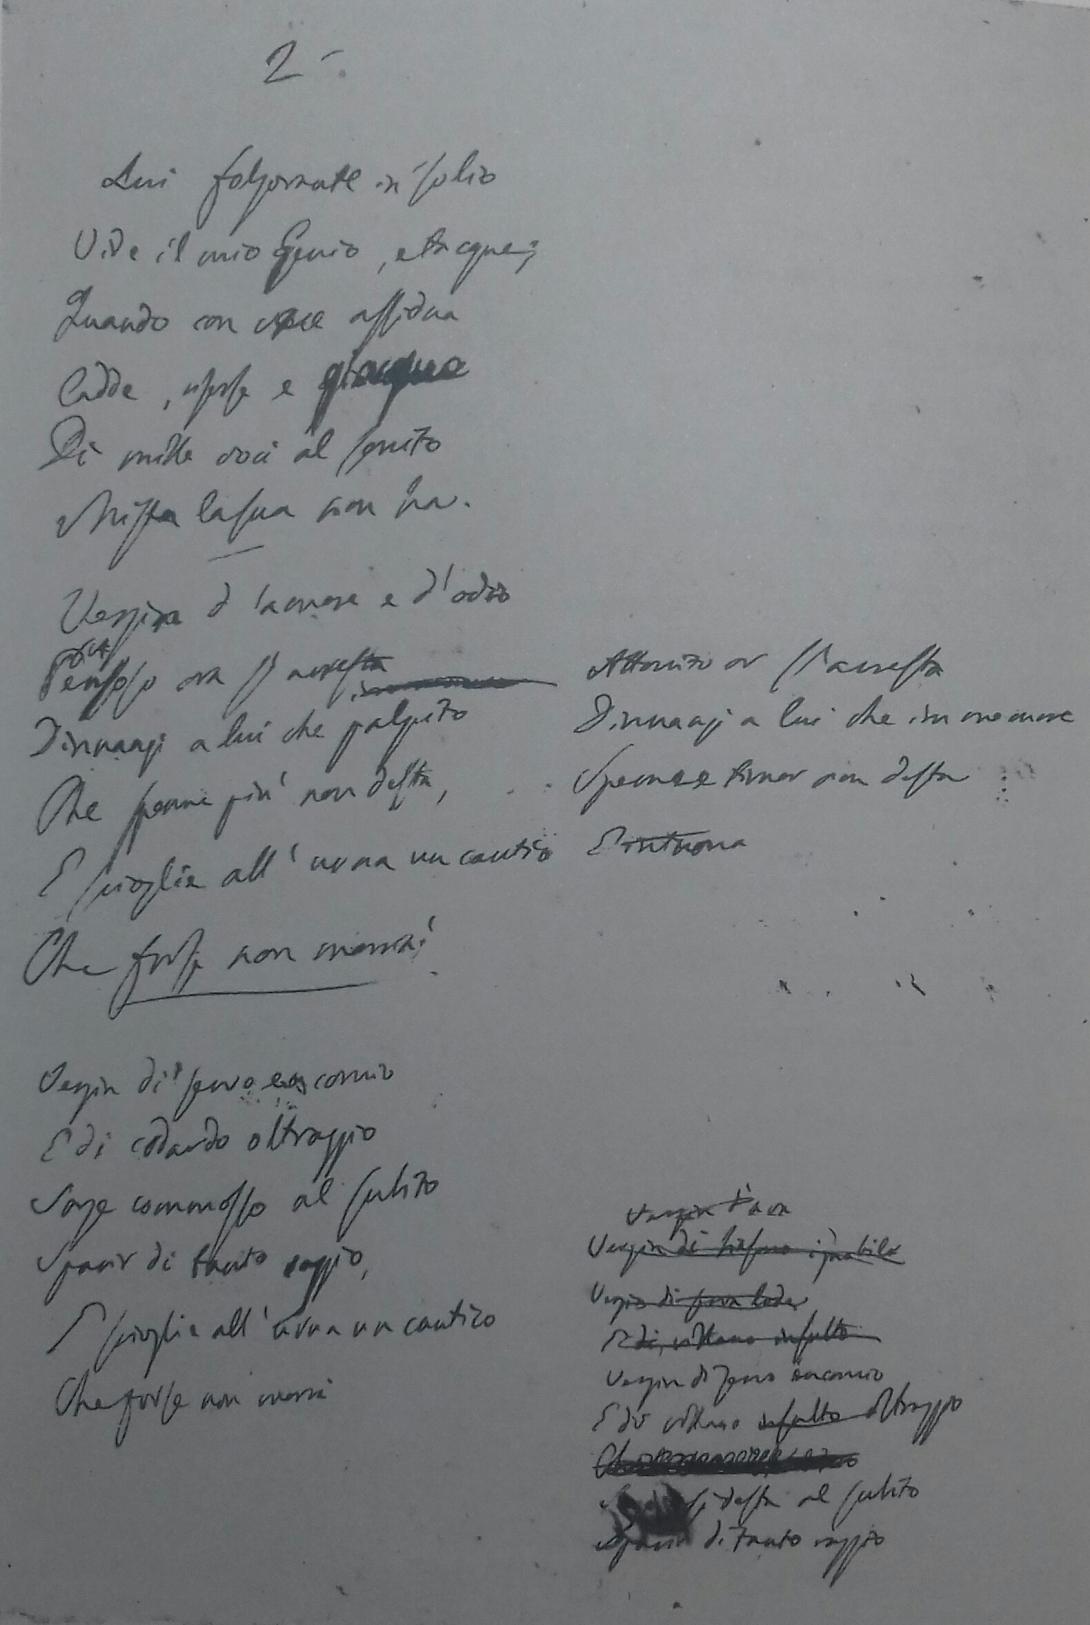 2
Lui folgorante in solio
Vide il mio Genio, e tacque;
Quando con vece assidua
Cadde, risorse e giacque
Di mille voci al sonito
Mista la sua non ha.
Vergin d'amore e d'odio
Pensoso ora s'arresta
Dinnanzi a lui che palpito
Che speme più non desta,
E scioglie all'urna un cantico
Che forse non morrà!
Attonito or s'arresta
Dinnanzi a lui che in one more
Speme e timor non desta
E intuona
Vergin di servo encomio
E di codardo oltraggio
Sorge commosso al subito
Sparir di tanto raggio,
E scioglie all'urna un cantico
Che forse non morrà
Vergin
Vergin di ignobile
Vergin di serva lode
E di villano insulto
Vergin di servo encomio
E di villano insulto oltraggio
si desta al subito
Sparir di tanto raggio